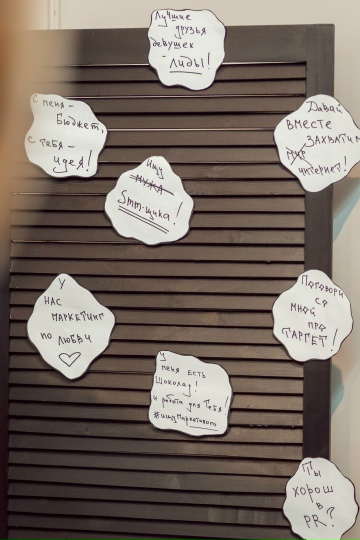 Лучшие
друзья
девушек
- лиды!
С меня -
бюджет,
с тебя -
идея!
Давай
вместе
захватим
мир
интернет!
Ищу
мужа
Smm-щика!
У
нас
маркетинг
по любви
Поговори
со
мной
про
таргет!
У
меня есть
шоколад!
И работа для тебя!
#ищуМаркетолога
Ты
хорош
в
PR?